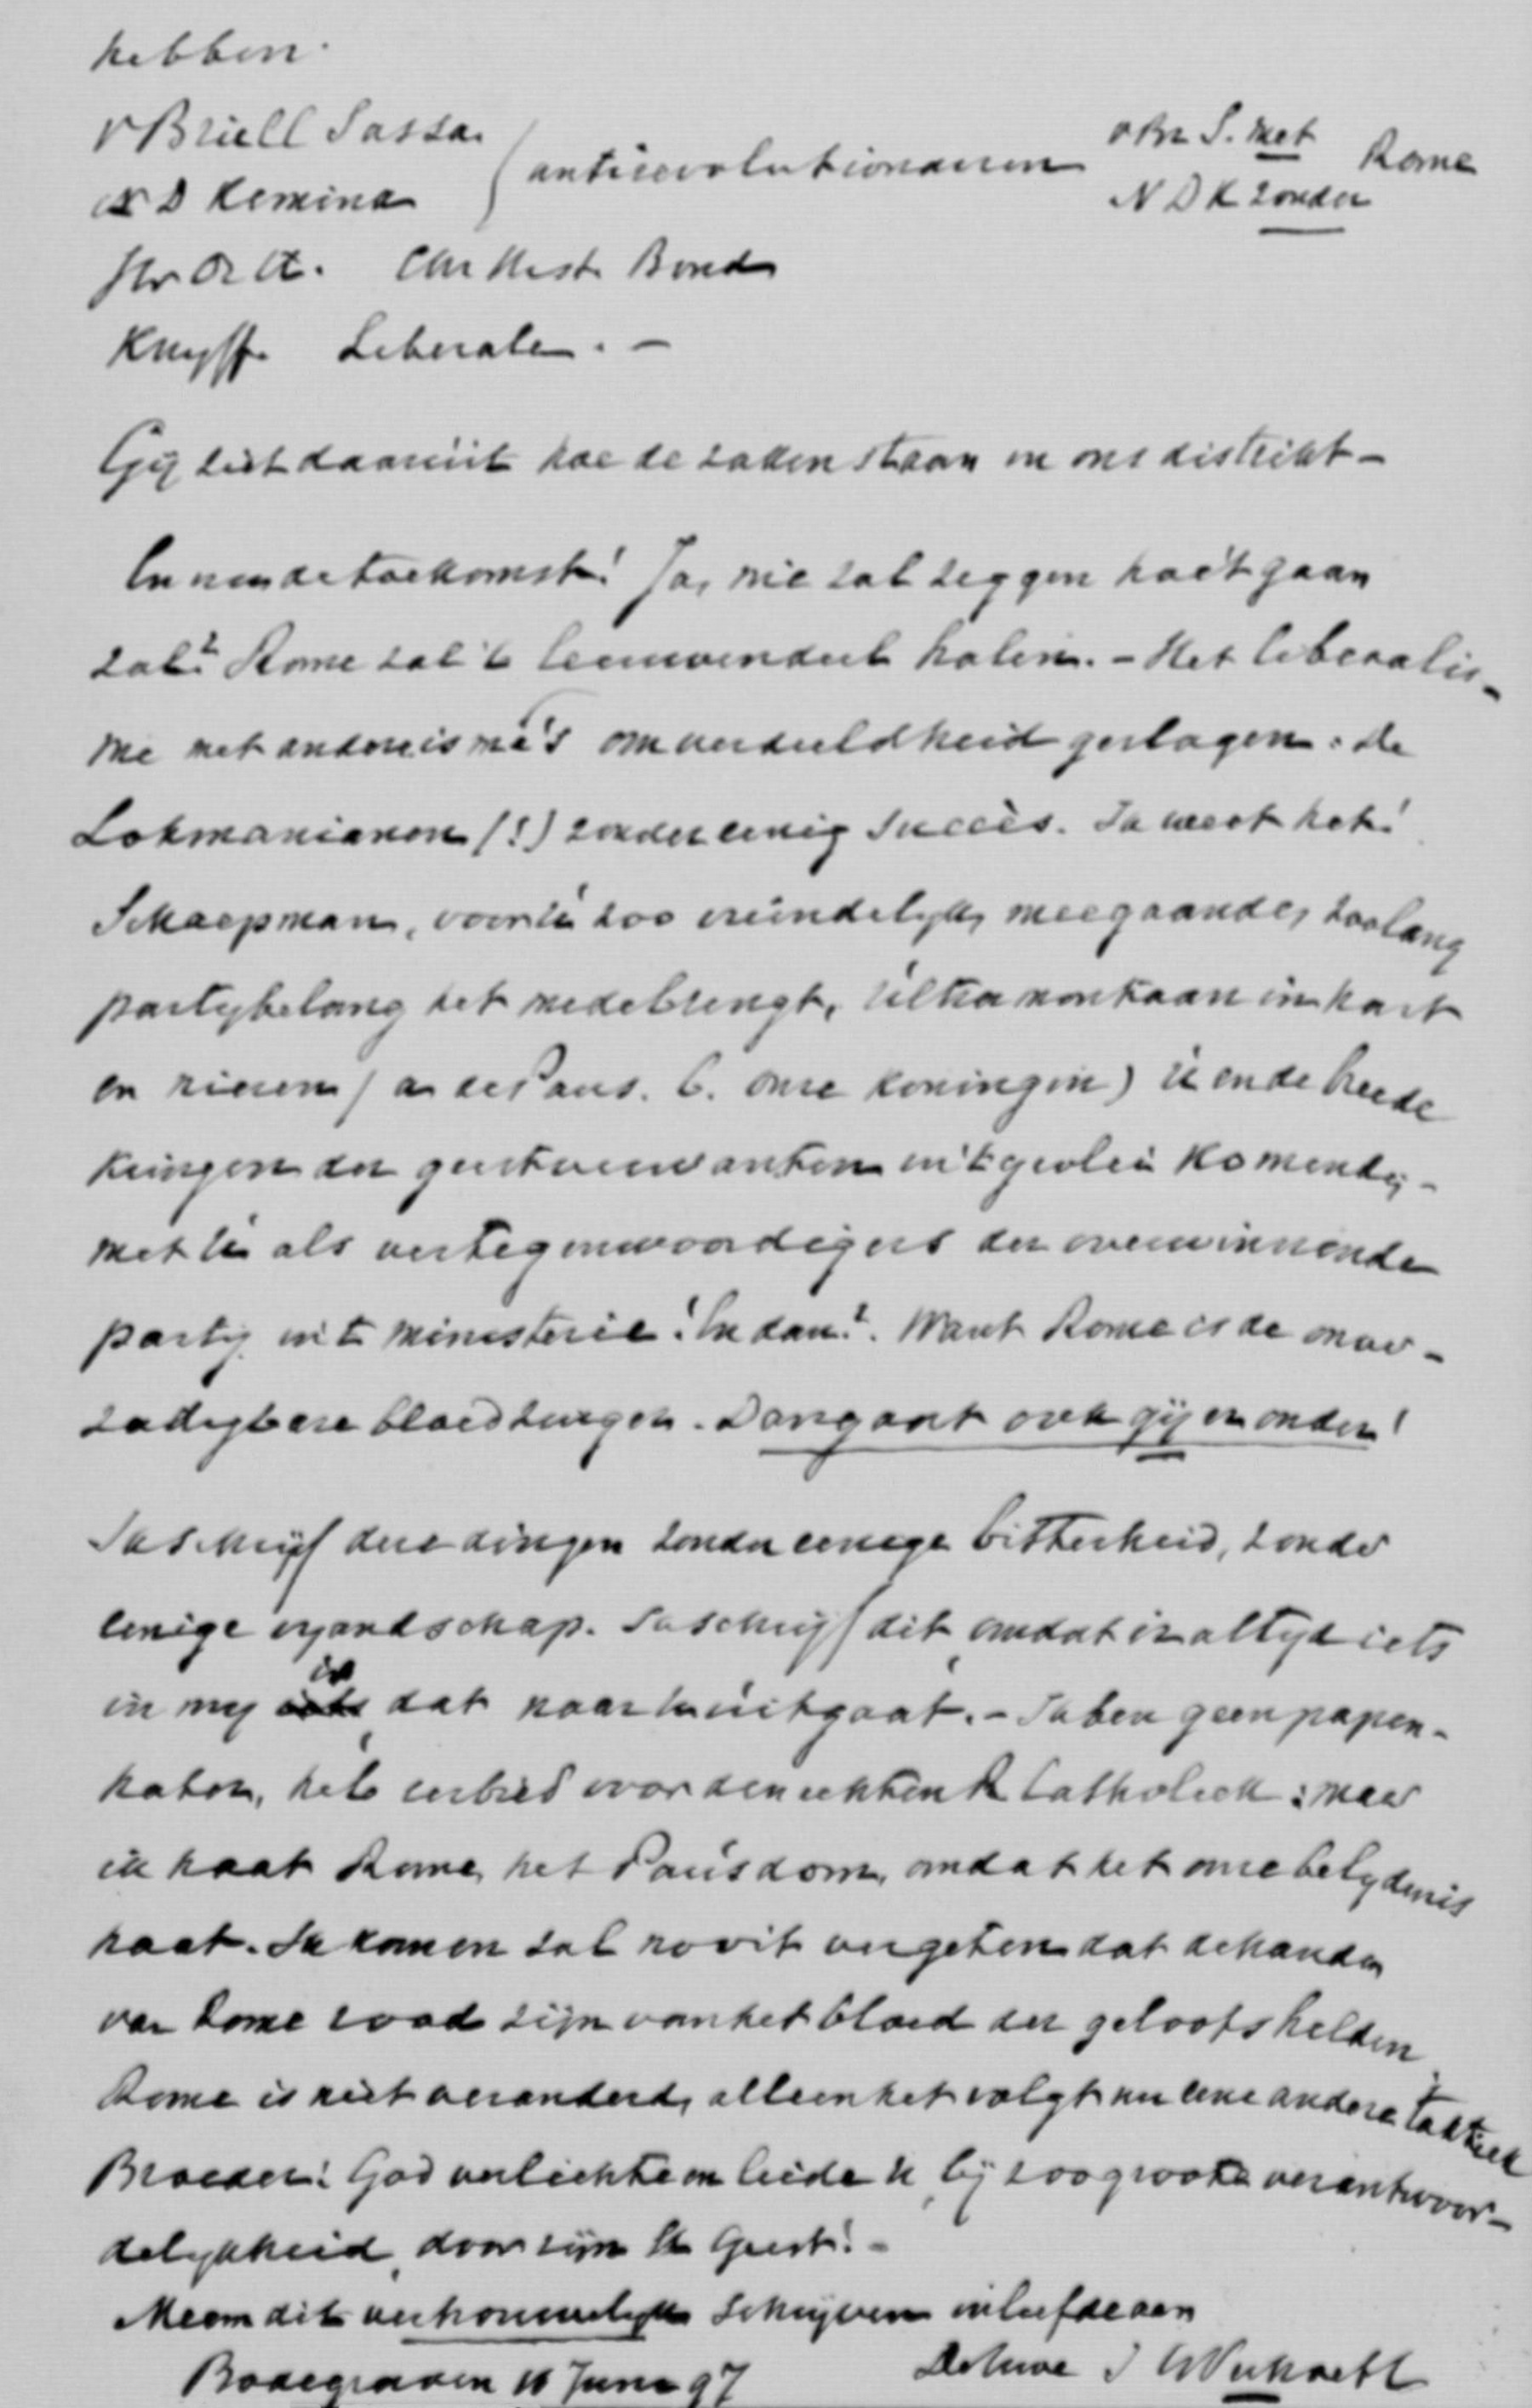 hebben.
v Bruell Sassa
N D Kemind (antirevolutionairen v Br S. met Rome
N D K zonder
Chr Hist Bond
Knyff Liberale. —
Gij ziet daaruit hoe de zaken staan in ons distrikt —
En nu de toekomst! Ja, wie zal zeggen hoe 't gaan
zal? Rome zal 't leeuwendeel halen. — Het liberalis-
me met andere isme's om verdeeldheid geslagen: de
Lohmanianen (!) zonder eenig succès. Ja weet het!
Schaepman, voor U zoo vriendelijk, meegaande, zoolang
partijbelang het medebrengt, ultramontaan in hart
en nieren (a de Paus. b. onze koningin) U en de breede
kringen der geestverwanten in 't gevlei komende, —
met U als vertegenwoordigers der overwinnende
partij in 't ministerie! En dan? Want Rome is de onver-
zadigbare bloedzuiger. Dan gaat ook gij er onder!
Ik schrijf deze dingen zonder eenige bitterheid, zonder
eenige vyandschap. Ik schrijf dit, omdat er altyd iets
in my is dat naar U uitgaat. — Ik ben geen papen-
hater, heb eerbied voor den echten R Catholiek: maar
ik haat Rome, het Pausdom, omdat het onze belydenis
haat. Ik kan en zal nooit vergeten dat de handen
van Rome rood zijn van het bloed der geloofshelden
Rome is niet veranderd, alleen het volgt nu eene andere taktiek
Broeder! God verlichte en leide U, bij zoo groote verantwoor-
delykheid, door zijn H Geest! —
Neem dit vertrouwelijk schrijven in liefde aan
Bodegraven 16 Juni 97 J W Verhoeff